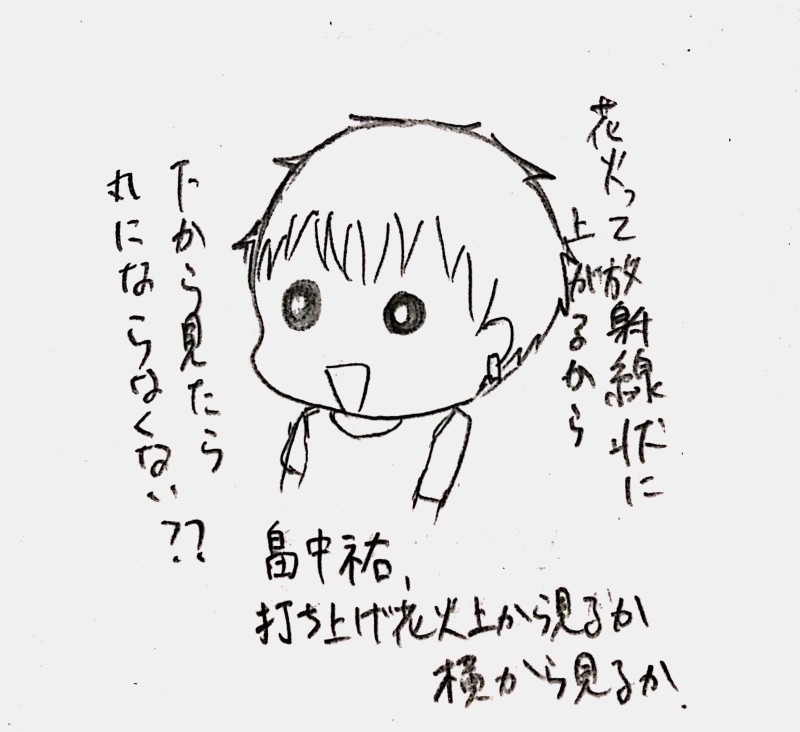 花火って放射線状に
上がるから
下から見たら
丸にならなくない??
畠中祐、
打ち上げ花火上から見るか
横から見るか.